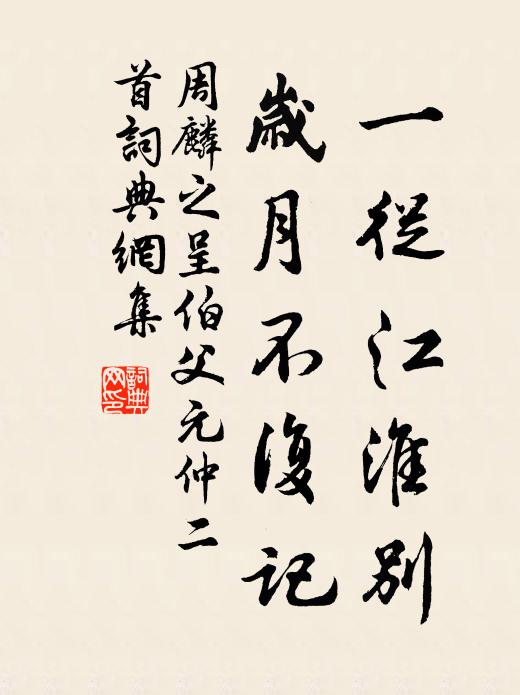 一從江淮別
歲月不復記
周麟之呈伯父元仲二
首詞典網集
詞典網印